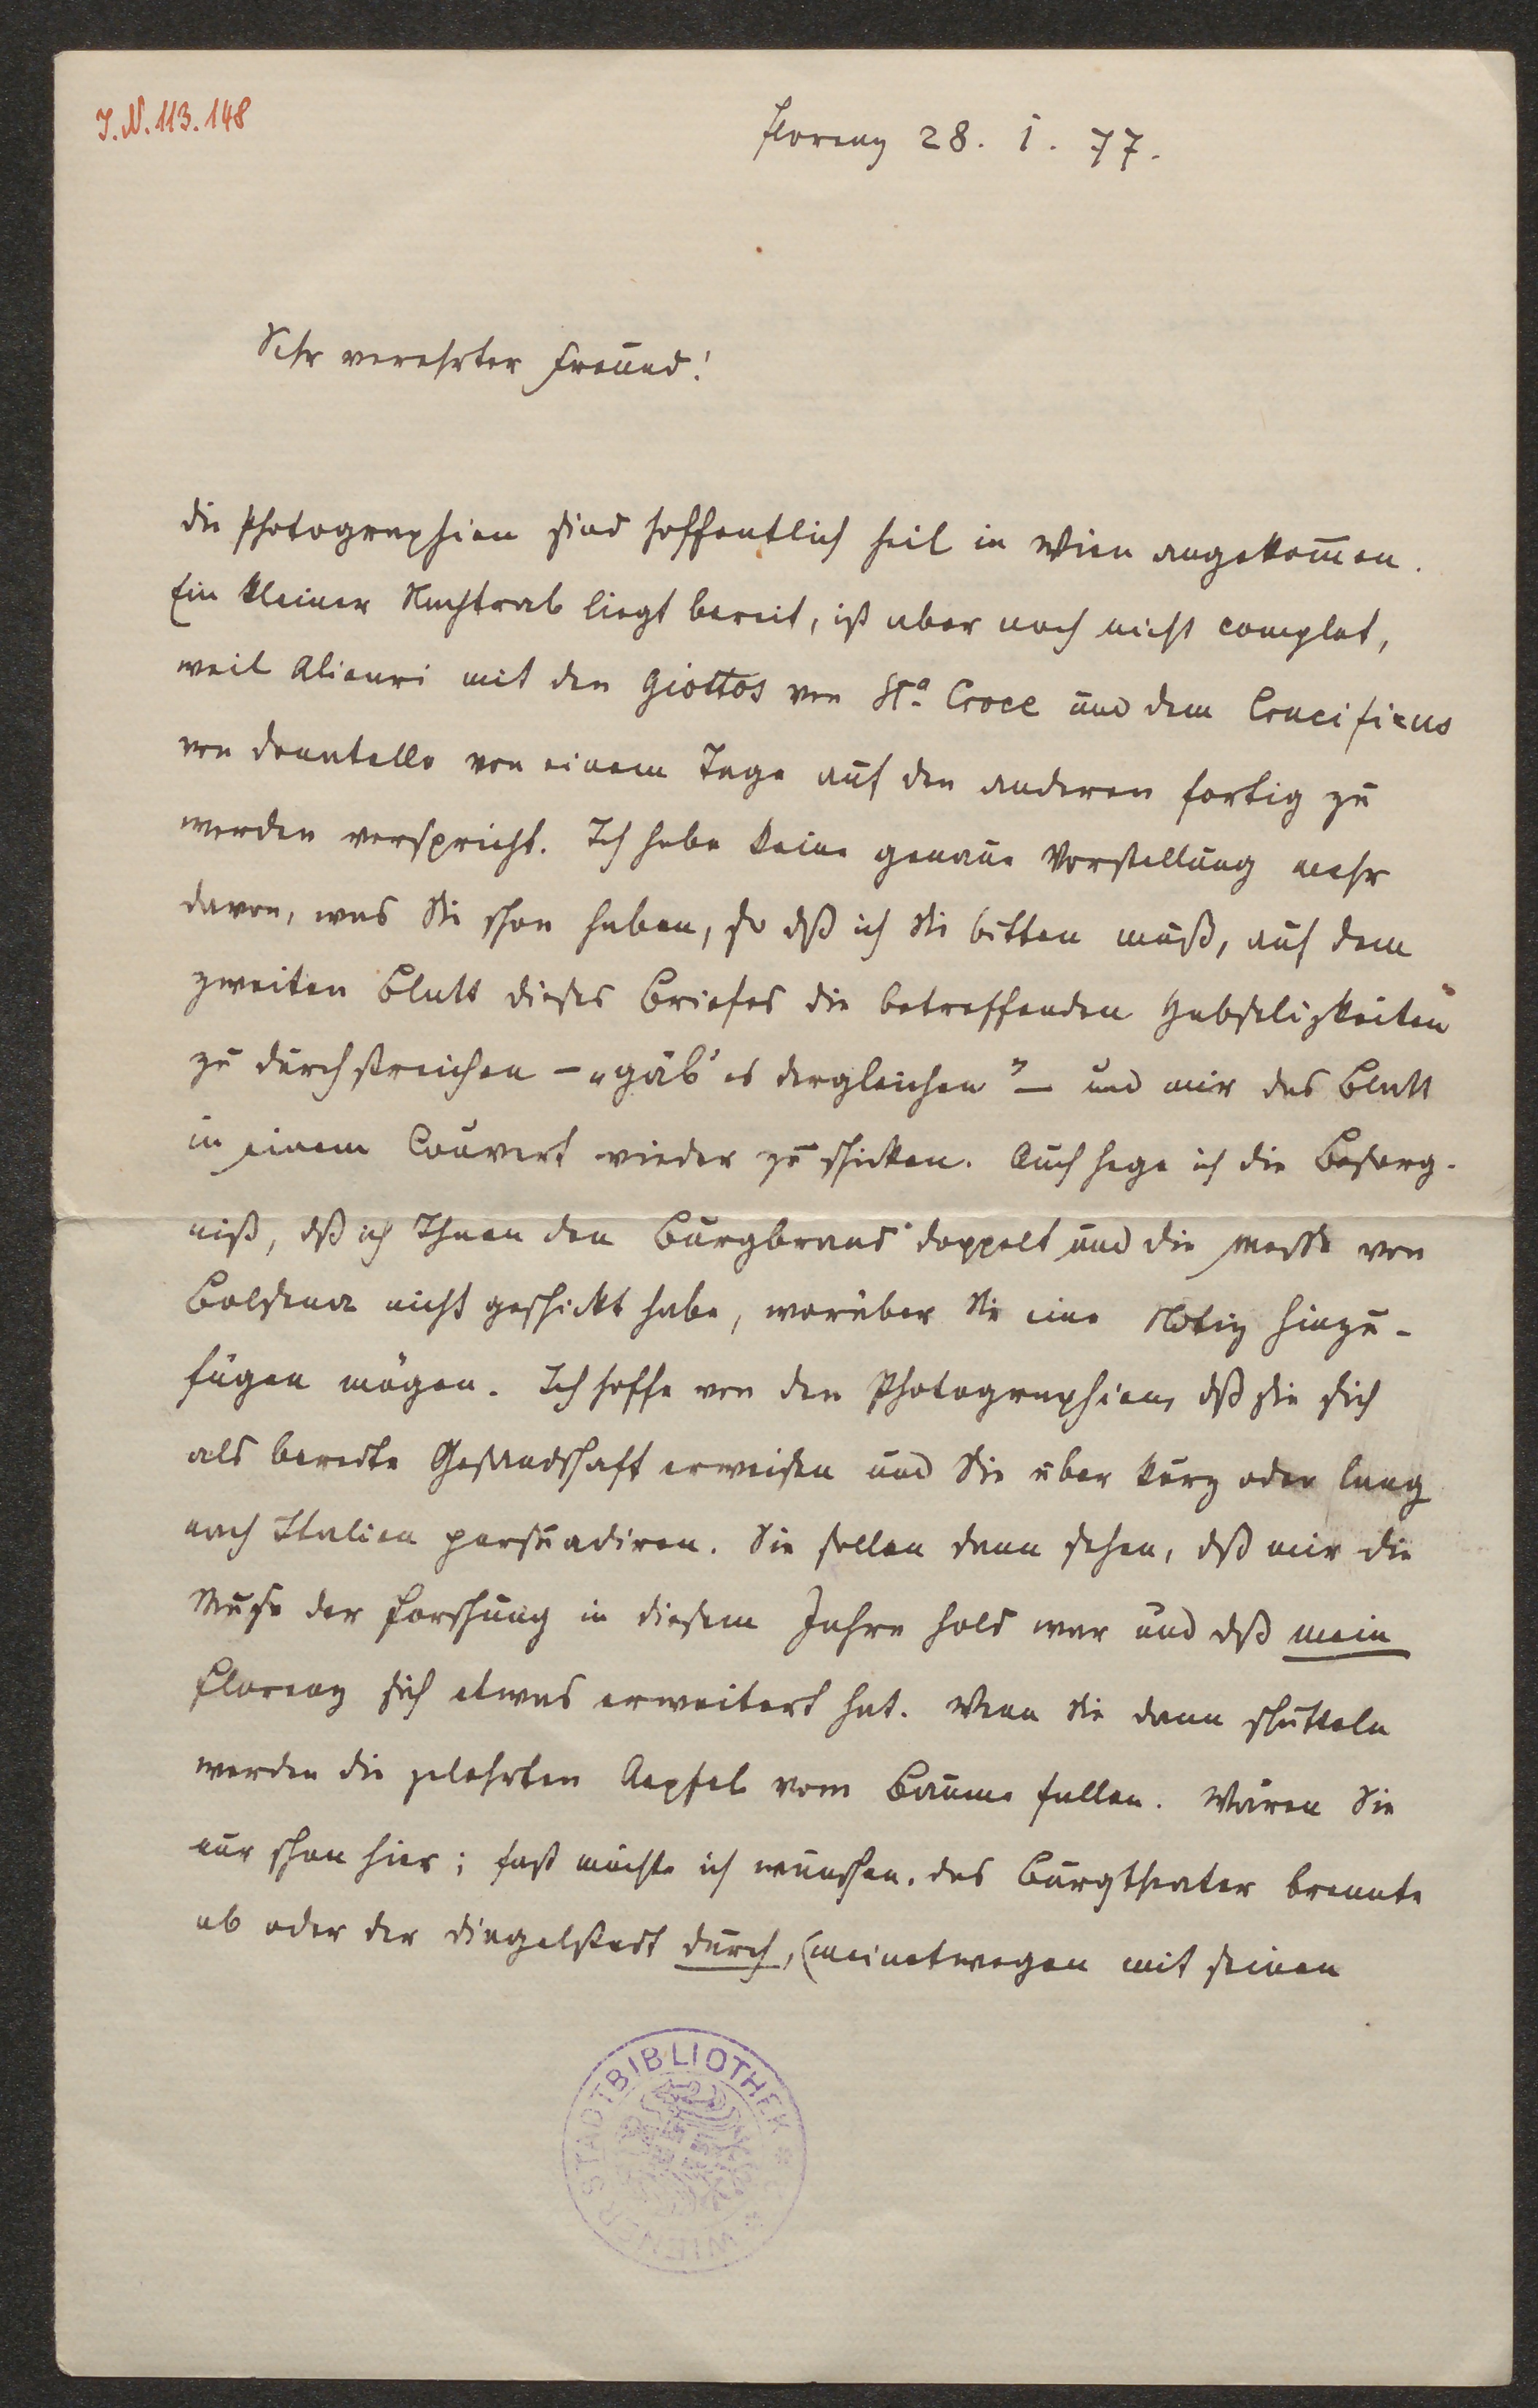 I.N. 113.148
Florenz 28. I. 77.
Sehr verehrter Freund!
die Photographien sind hoffentlich heil in Wien angekom̄en.
Ein kleiner Nachtrab liegt bereit, ist aber noch nicht complet,
weil Alinari mit den Giottos von Sta. Croce und dem Crucifixus
von Donatello von einem Tage auf den anderen fertig zu
werden verspricht. Ich habe keine genaue Vorstellung mehr
davon, was Sie schon haben, so dß ich Sie bitten muß, auf dem
zweiten Blatt dieses Briefes die betreffenden Habseligkeiten
zu durchstreichen – „gäb' es dergleichen" – und mir das Blatt
in einem Couvert wieder zu schicken. Auch hege ich die Besorg-
niß, dß ich Ihnen den Burgbrand doppelt und die Messe von
Bolsena nicht geschickt habe, worüber Sie eine Notiz hinzu-
fügen mögen. Ich hoffe von den Photographien, dß sie sich
als beredte Gesandschaft erweisen und Sie über kurz oder lang
nach Italien persuadiren. Sie sollen dann sehen, dß mir die
Muse der Forschung in diesem Jahre hold war und dß mein
Florenz sich etwas erweitert hat. Wenn Sie dann schütteln
werden die gelehrten Aepfel vom Baume fallen. Wären Sie
nur schon hier; fast möchte ich wünschen, das Burgtheater brennte
ab oder der Dingelstedt durch, (meinetwegen mit seinen
WIENER STADTBIBLIOTHEK